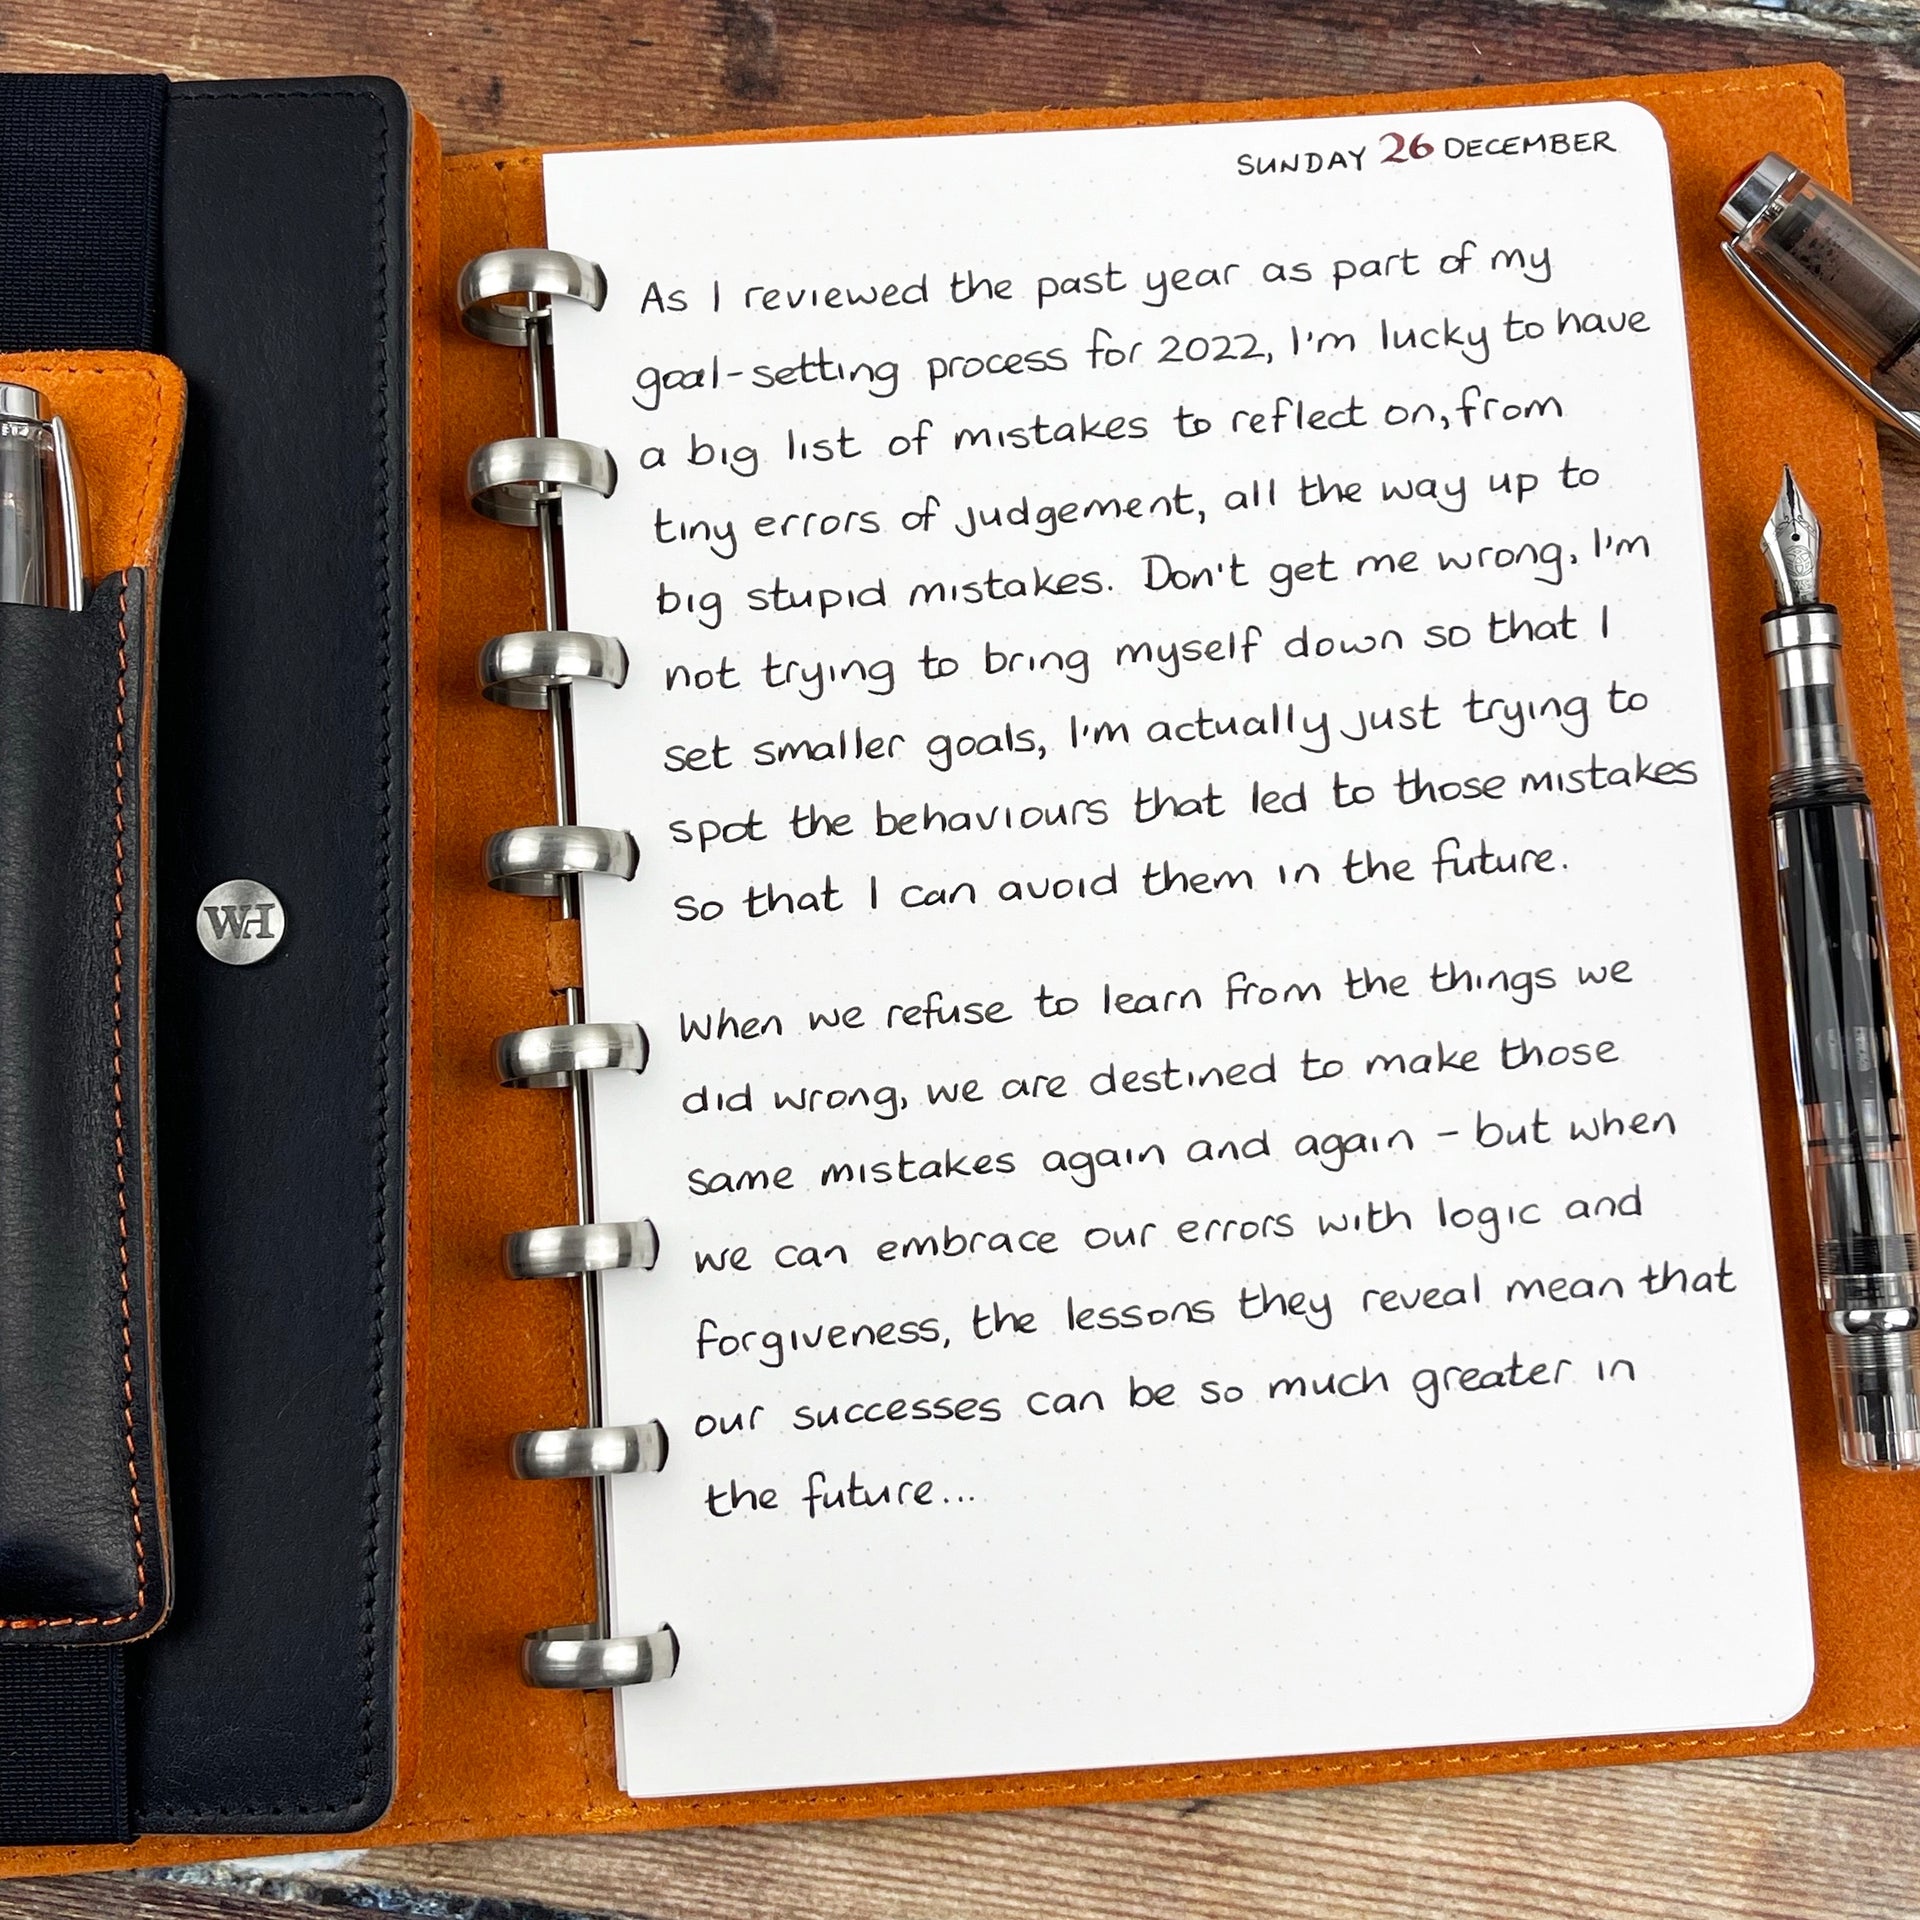 SUNDAY 26 DECEMBER
As I reviewed the past year as part of my
goal-setting process for 2022, I'm lucky to have
a big list of mistakes to reflect on, from
tiny errors of judgement, all the way up to
big stupid mistakes. Don't get me wrong, I'm
not trying to bring myself down so that I
set smaller goals, I'm actually just trying to
spot the behaviours that led to those mistakes
so that I can avoid them in the future.
When we refuse to learn from the things we
did wrong, we are destined to make those
same mistakes again and again - but when
we can embrace our errors with logic and
forgiveness, the lessons they reveal mean that
our successes can be so much greater in
the future...
WH